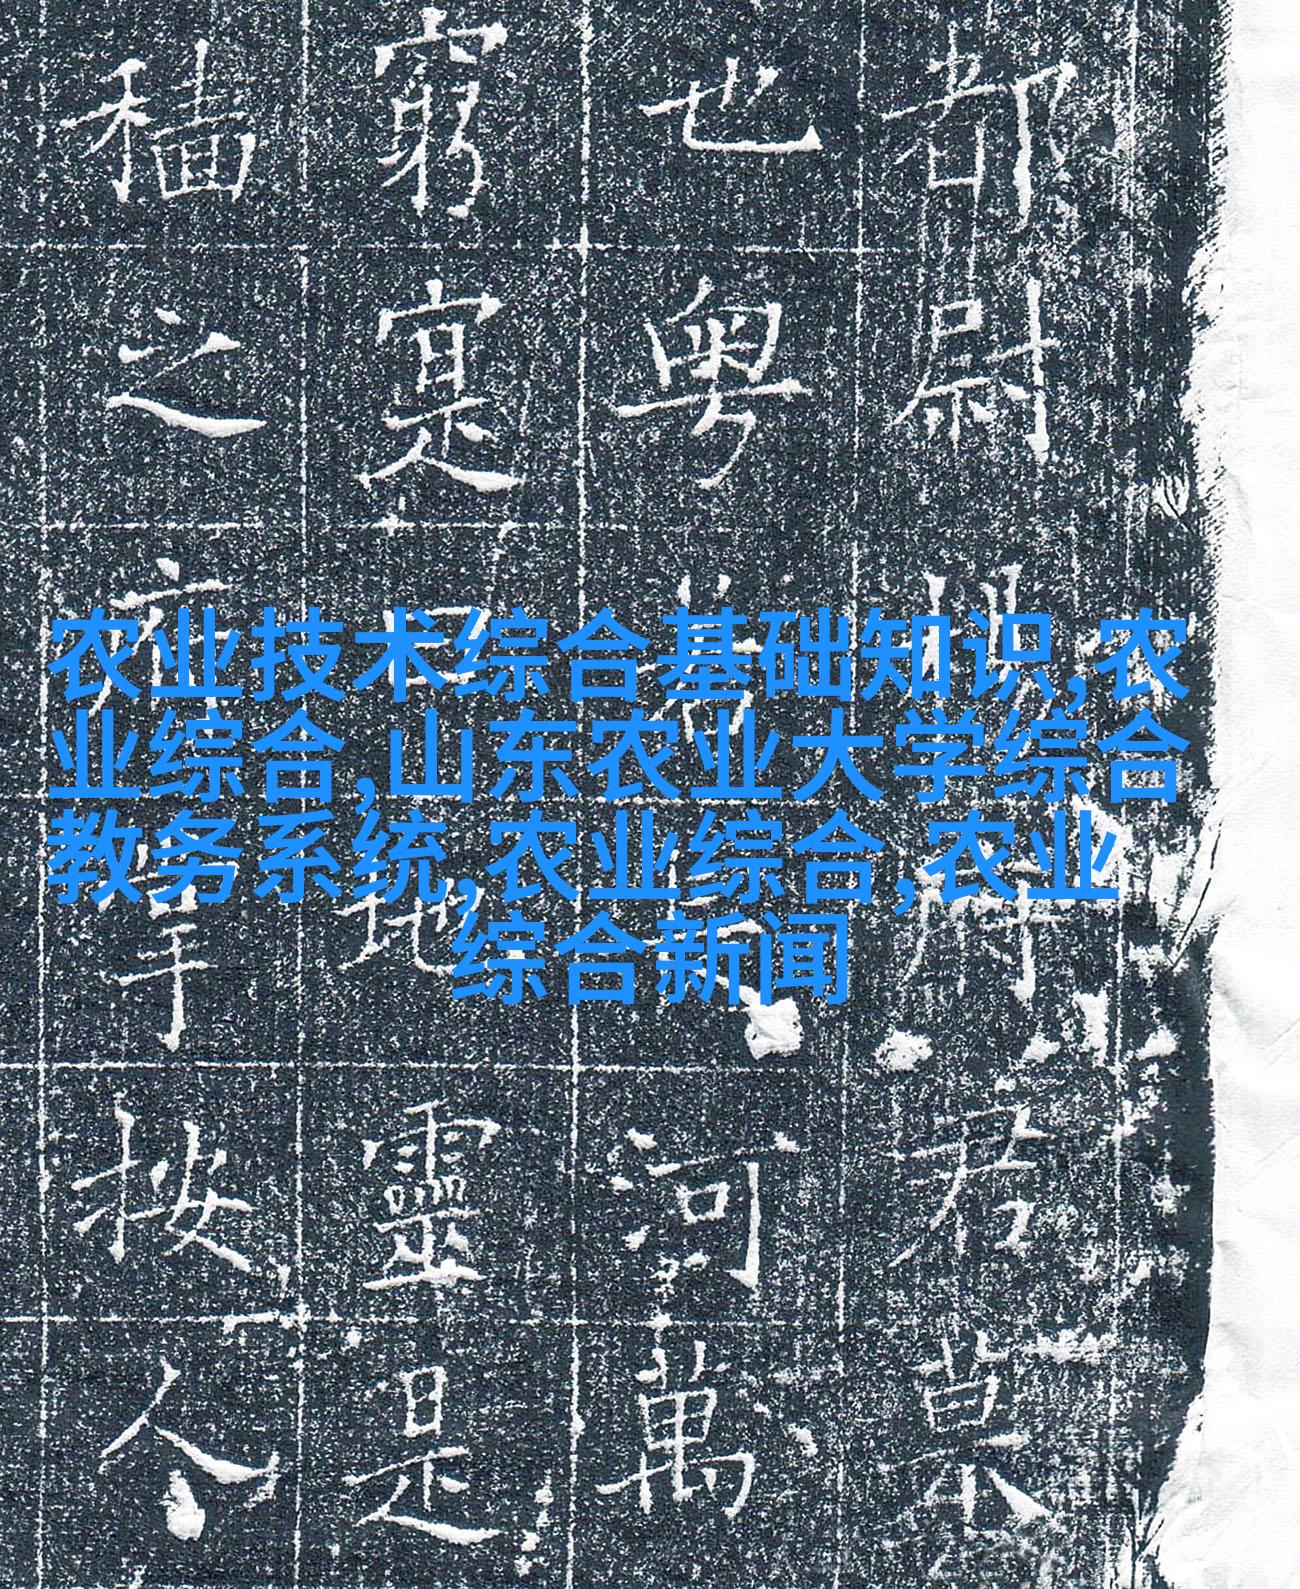 农业技术综合基础知识,农
业综合,山东农业大学综合
教务系统,农业综合,农业
综合新闻
都尉君
也粤若河萬
窮寔曰地靈是
穡之府按人